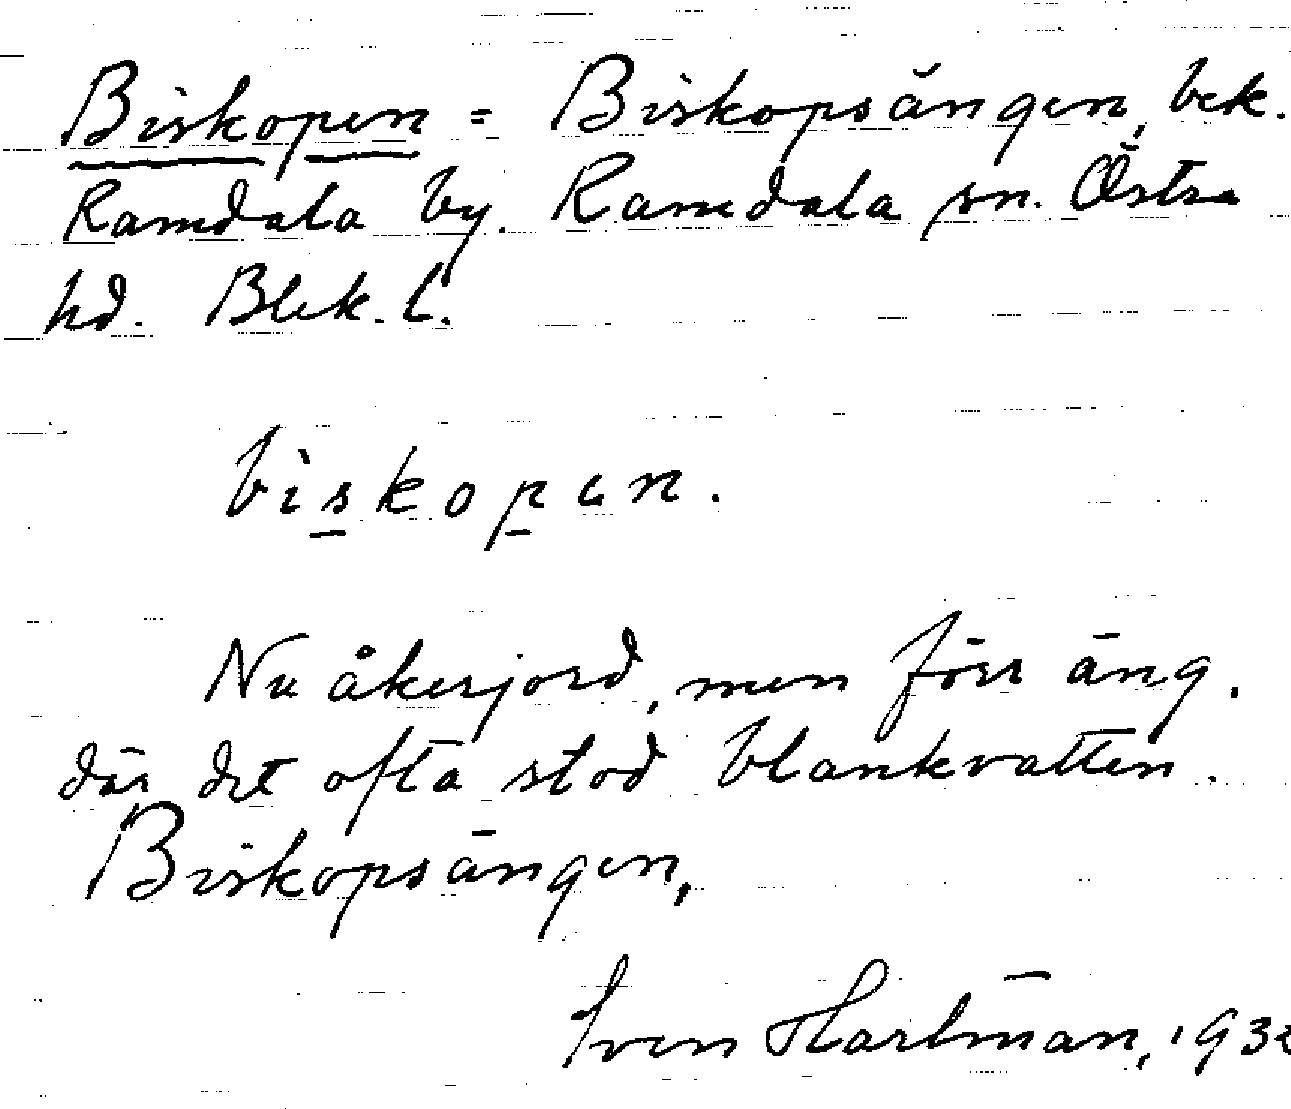 Biskopen = Biskopsängen, bek.
Ramdala by. Ramdala sn. Östra
hd. Blek. l.
bìskopen.
Nu åkerjord, men förr äng,
där det ofta stod blankvatten.
Biskopsängen,
Sven Hartman, 193